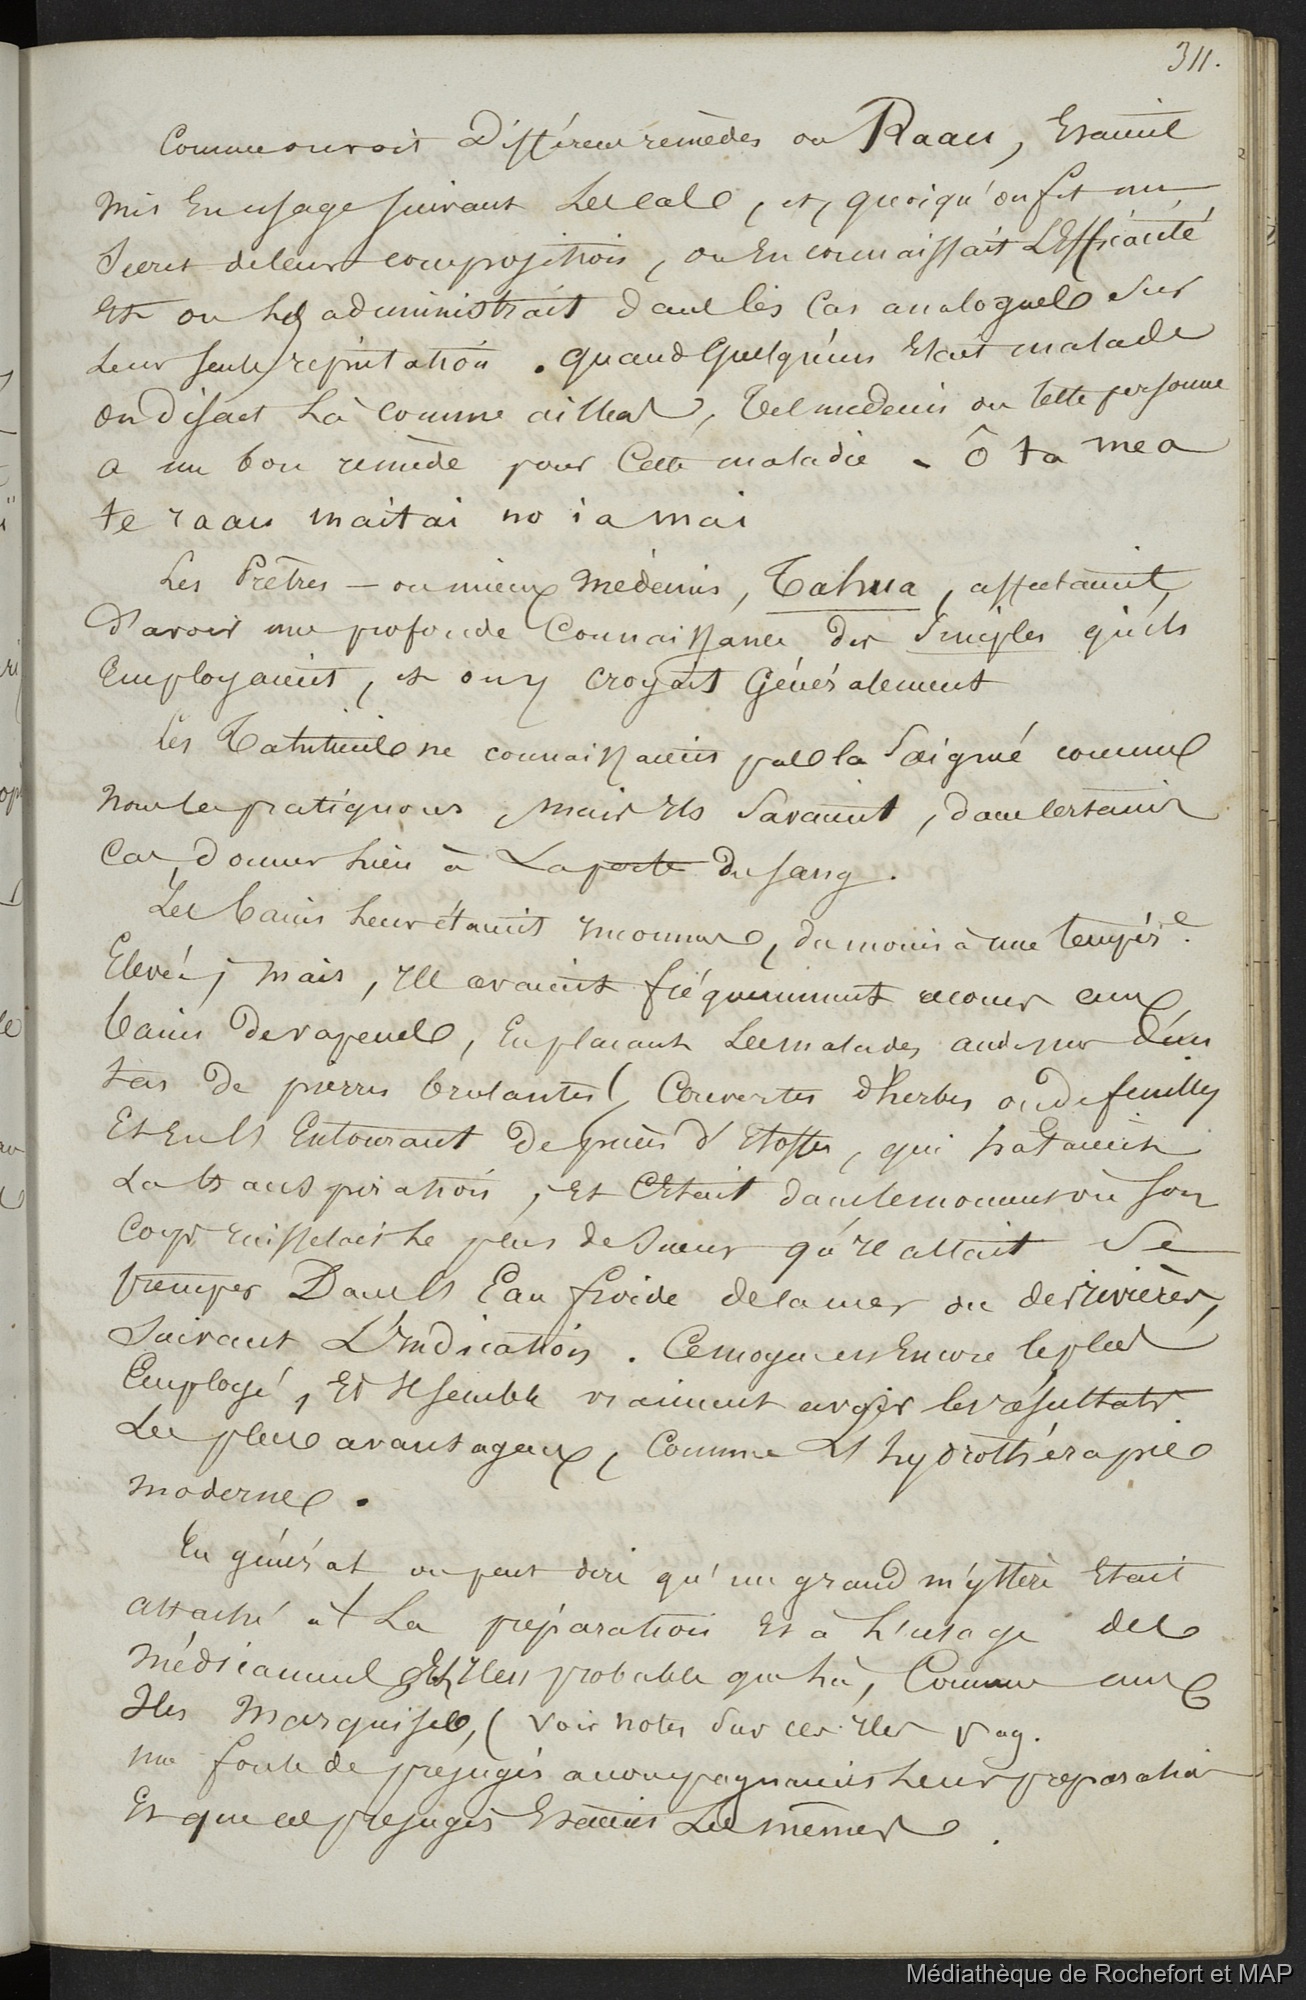 311.
Comme on voit Différens remèdes ou Raau, Etaient
mis En usage suivant Les cas, et, quoiqu'on fit un
Secret de leur composition, on En connaissait L'Efficacité
Et on les administrait dans les Cas analogues sur
Leur seule réputation. quand Quelqu'un Etait malade
on disait Là comme ailleurs, Tel medecin ou telle personne
a un bon remède pour Cette maladie - ô ta mea
te raau maitai no ia mai
Les Prêtres - ou mieux Médecins, Tahua, affectaient
d'avoir une profonde Connaissance des Simples qu'ils
Employaient, et on y croyait Généralement
les Taïtiens ne connaissaient pas la Saignée comme
nous la pratiquons, mais ils Savaient, dans certains
Cas, donner lieu à La perte du sang.
Les bains leur étaient inconnus, du moins à une tempér.e
Elevée; mais, ils avaient fréquemment recours aux
bains de vapeurs, En plaçant Les malades au dessus d'un
tas de pierres brulantes, Couvertes d'herbes ou de feuilles
Et En les Entourant de pièces d'Etoffes, qui hataient
La transpiration, Et C'Etait dans le moment où son
Corps ruisselait le plus de Sueur qu'il allait Se
tremper Dans l'Eau froide de la mer ou des rivières,
Suivant L'indication. Ce moyen est Encore le plus
Employé, Et il semble vraiment avoir les résultats
Les plus avantageux, Comme L'hydrothérapie
moderne.
En général on peut dire qu'un grand mystère Etait
attaché à La préparation Et à l'usage des
Médicamens Et il est probable que là, Comme aux
Iles Marquises, (voir notes sur ces iles pag.
une foule de préjugés accompagnaient leur préparation
Et que ces préjugés Etaient Les mêmes.
Médiathèque de Rochefort et MAP